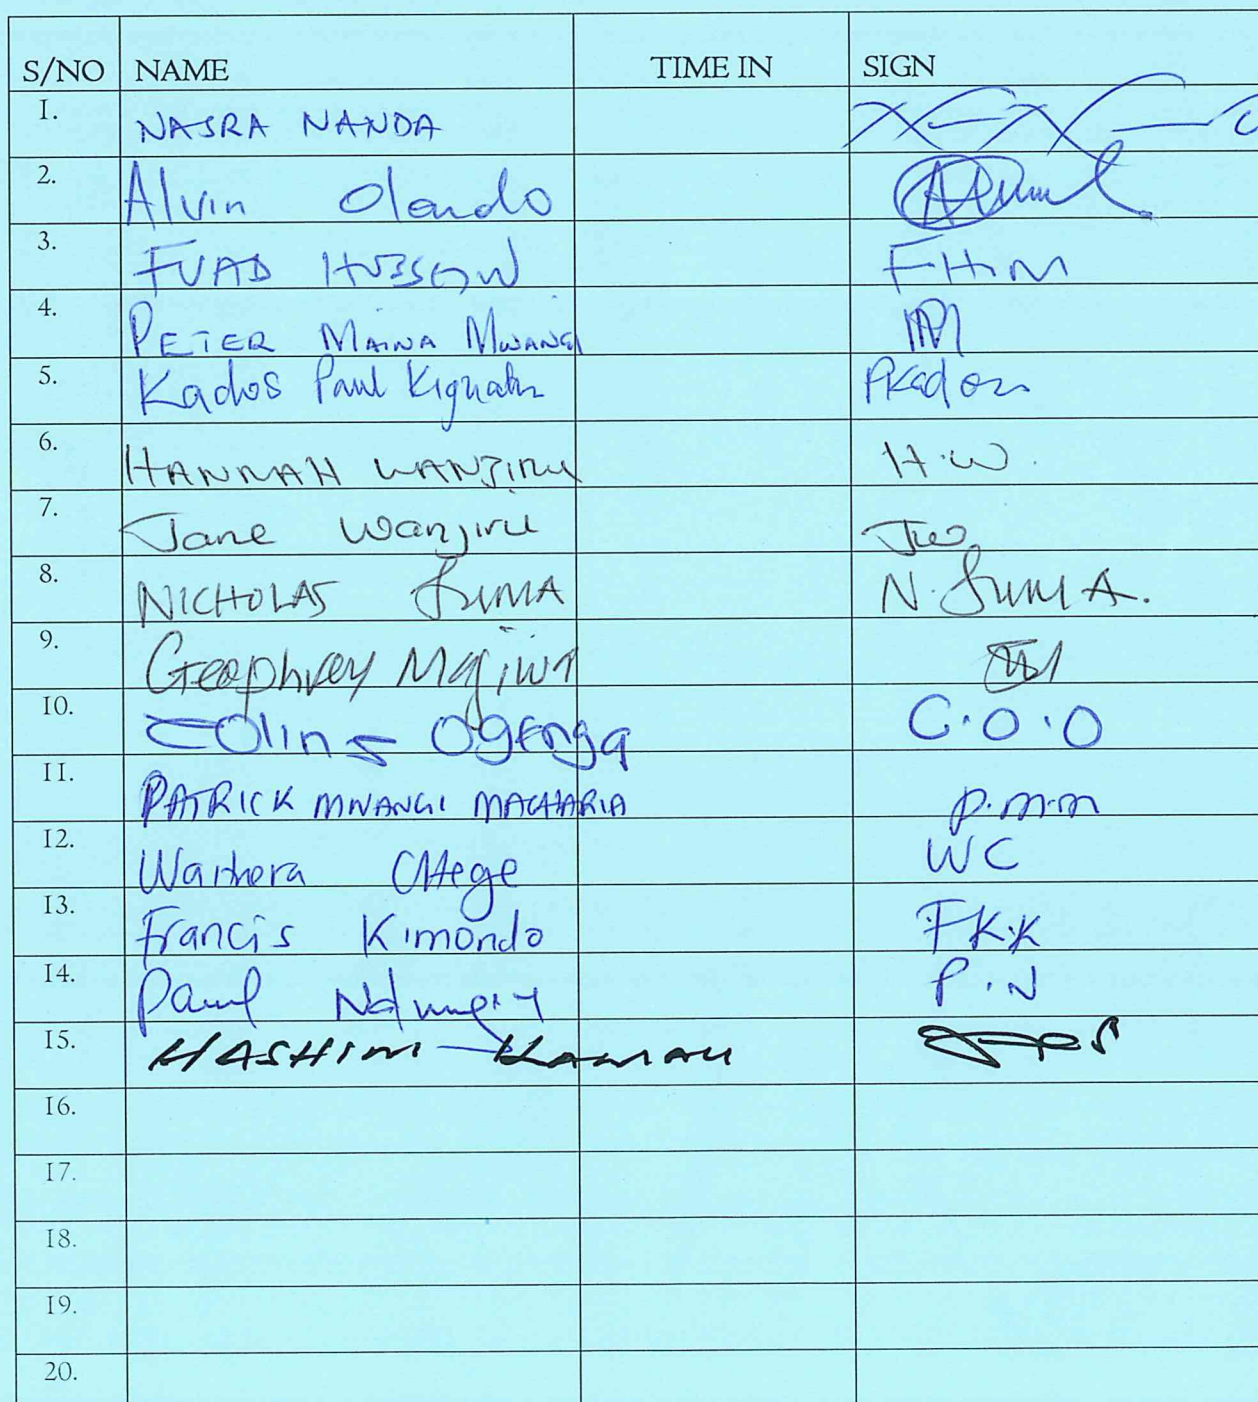 S/NO NAME TIME IN SIGN
1. NASRA NANDA
2. Alvin Olando
3. FUAD HUSSEIN FHM
4. PETER MAINA MWANGI
5. Kados Paul Pkados
6. HANNAH WANJIRU H.W.
7. Jane Wanjiru JW
8. NICHOLAS JUMA N. JUMA.
9. Geophrey Majiwa
10. Colins Ogenga C.O.O
11. PATRICK MWANGI MACHARIA P.M.M
12. Waithera Chege WC
13. Francis Kimondo F.K.K
14. Paul P.N
15. HASHIM KAMAU
16.
17.
18.
19.
20.